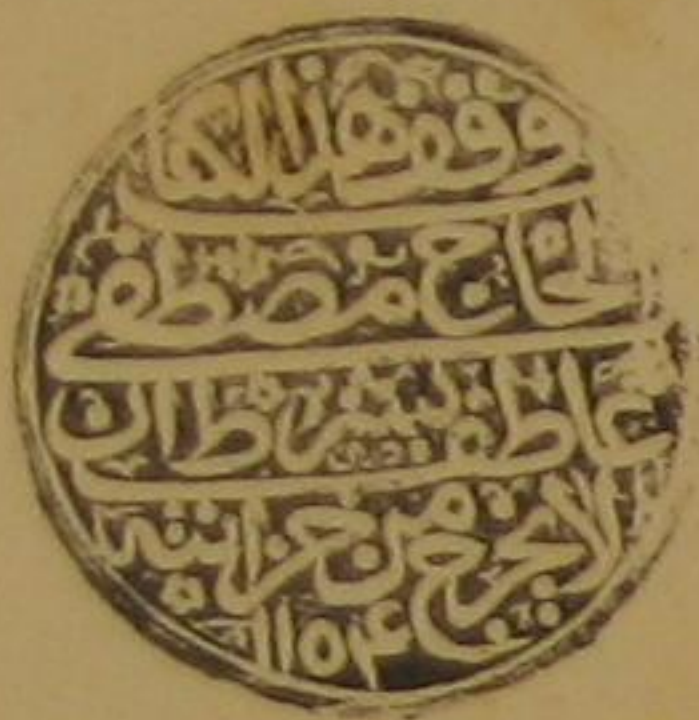 وقف هذا الكتاب
الحاج مصطفى
عاطف بشرط ان
لا يخرج من خزانته
١١٥۴